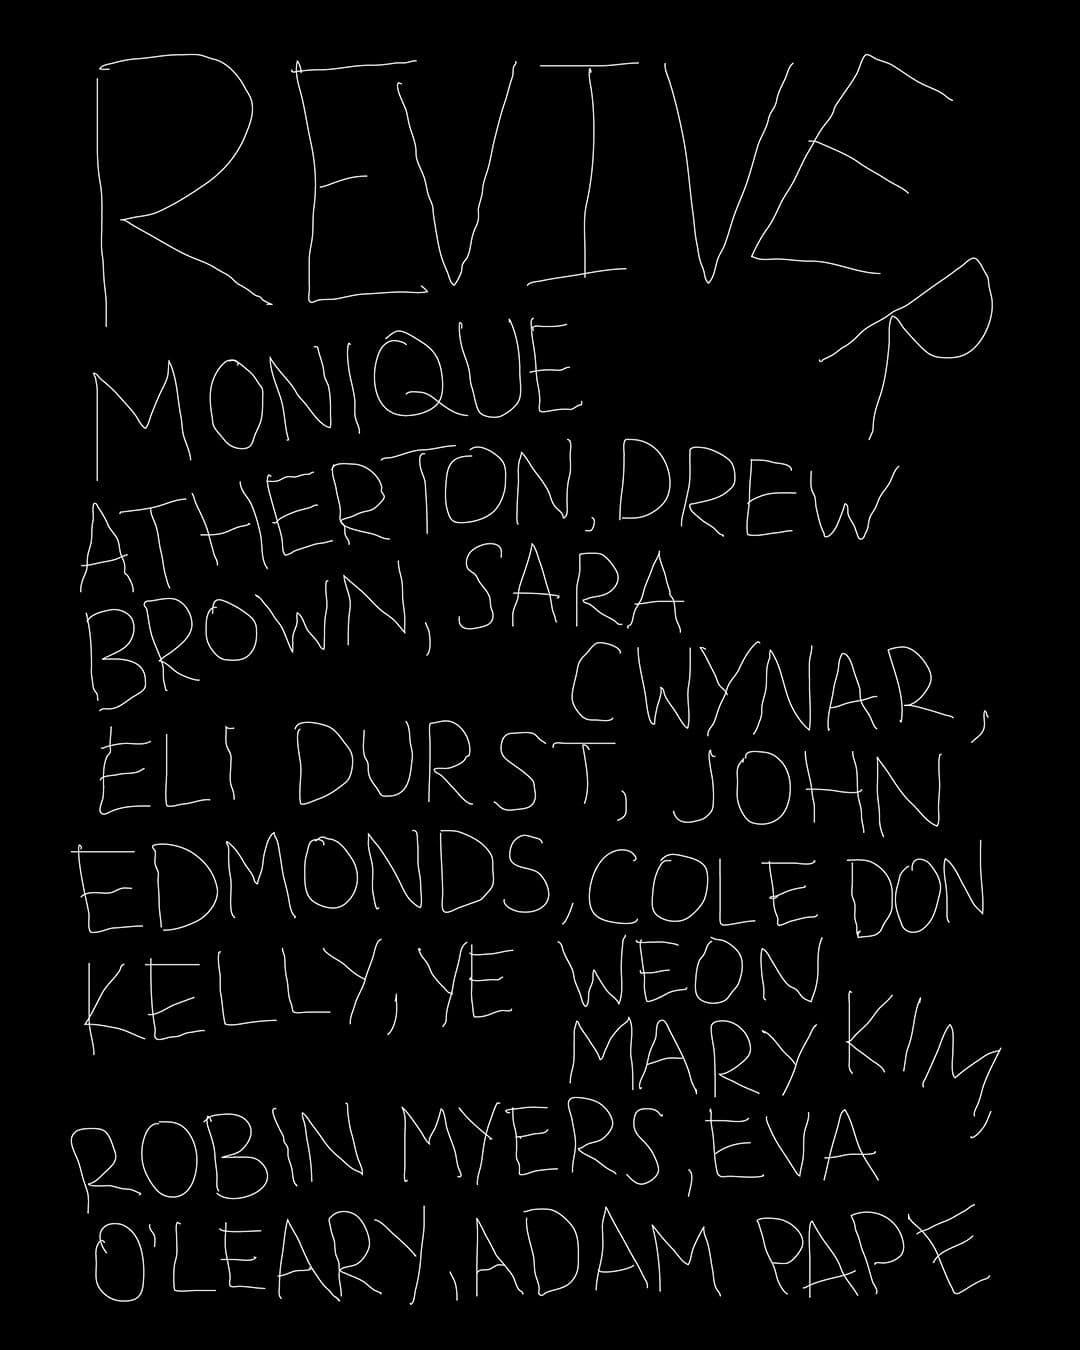 REVIVER
MONIQUE
ATHERTON, DREW
BROWN, SARA
CWYNAR,
ELI DURST, JOHN
EDMONDS, COLE DON
KELLY, YE WEON
MARY KIM,
ROBIN MYERS, EVA
O'LEARY, ADAM PAPE